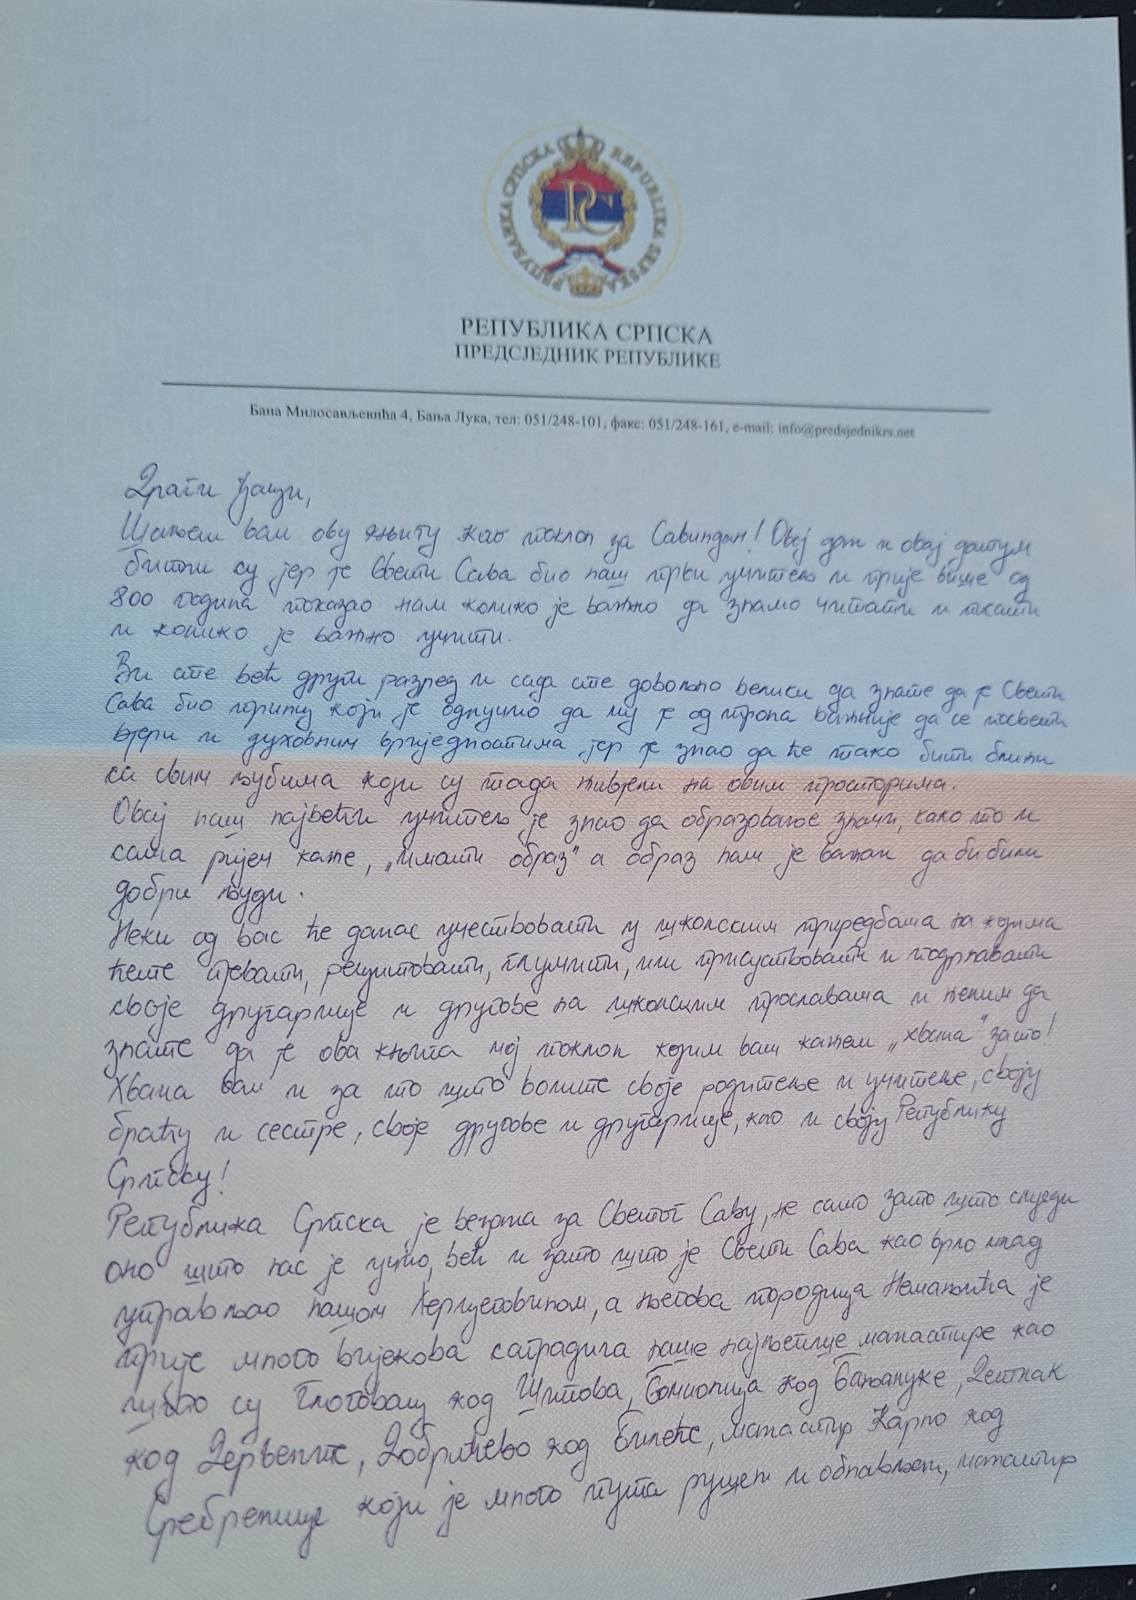 РЕПУБЛИКА СРПСКА REPUBLIKA SRPSKA
РС
РЕПУБЛИКА СРПСКА
ПРЕДСЈЕДНИК РЕПУБЛИКЕ
Бана Милосављевића 4, Бања Лука, тел: 051/248-101, факс: 051/248-161, e-mail: info@predsjednikrs.net
Драги ђаци,
Шаљем вам ову књигу као поклон за Савиндан! Овај дан и овај датум
битни су јер је Свети Сава био наш први учитељ и прије више од
800 година показао нам колико је важно да знамо читати и писати
и колико је важно учити.
Ви сте већ други разред и сада сте довољно велики да знате да је Свети
Сава био принц који је одлучио да му је од трона важније да се посвети
вјери и духовним вриједностима јер је знао да ће тако бити ближи
са свим људима који су тада живјели на овим просторима.
Овај наш највећи учитељ је знао да образовање значи, како то и
сама ријеч каже, „имати образ" а образ нам је важан да би били
добри људи.
Неки од вас ће данас учествовати у школским приредбама на којима
ћете пјевати, рецитовати, глумити, или присуствовати и подржавати
своје другарице и другове на школским прославама и желим да
знате да је ова књига мој поклон којим вам кажем „хвала" за то!
Хвала вам и за то што волите своје родитеље и учитеље, своју
браћу и сестре, своје другове и другарице, као и своју Републику
Српску!
Република Српска је везана за Светог Саву, не само зато што слиједи
оно што нас је учио, већ и зато што је Свети Сава као врло млад
управљао нашом Херцеговином, а његова породица Немањића је
прије много вијекова саградила наше најљепше манастире као
што су Глоговац код Шипова, Гомионица код Бањалуке, Детлак
код Дервенте, Добрићево код Билеће, манастир Карно код
Сребренице који је много пута рушен и обнављен, манастир